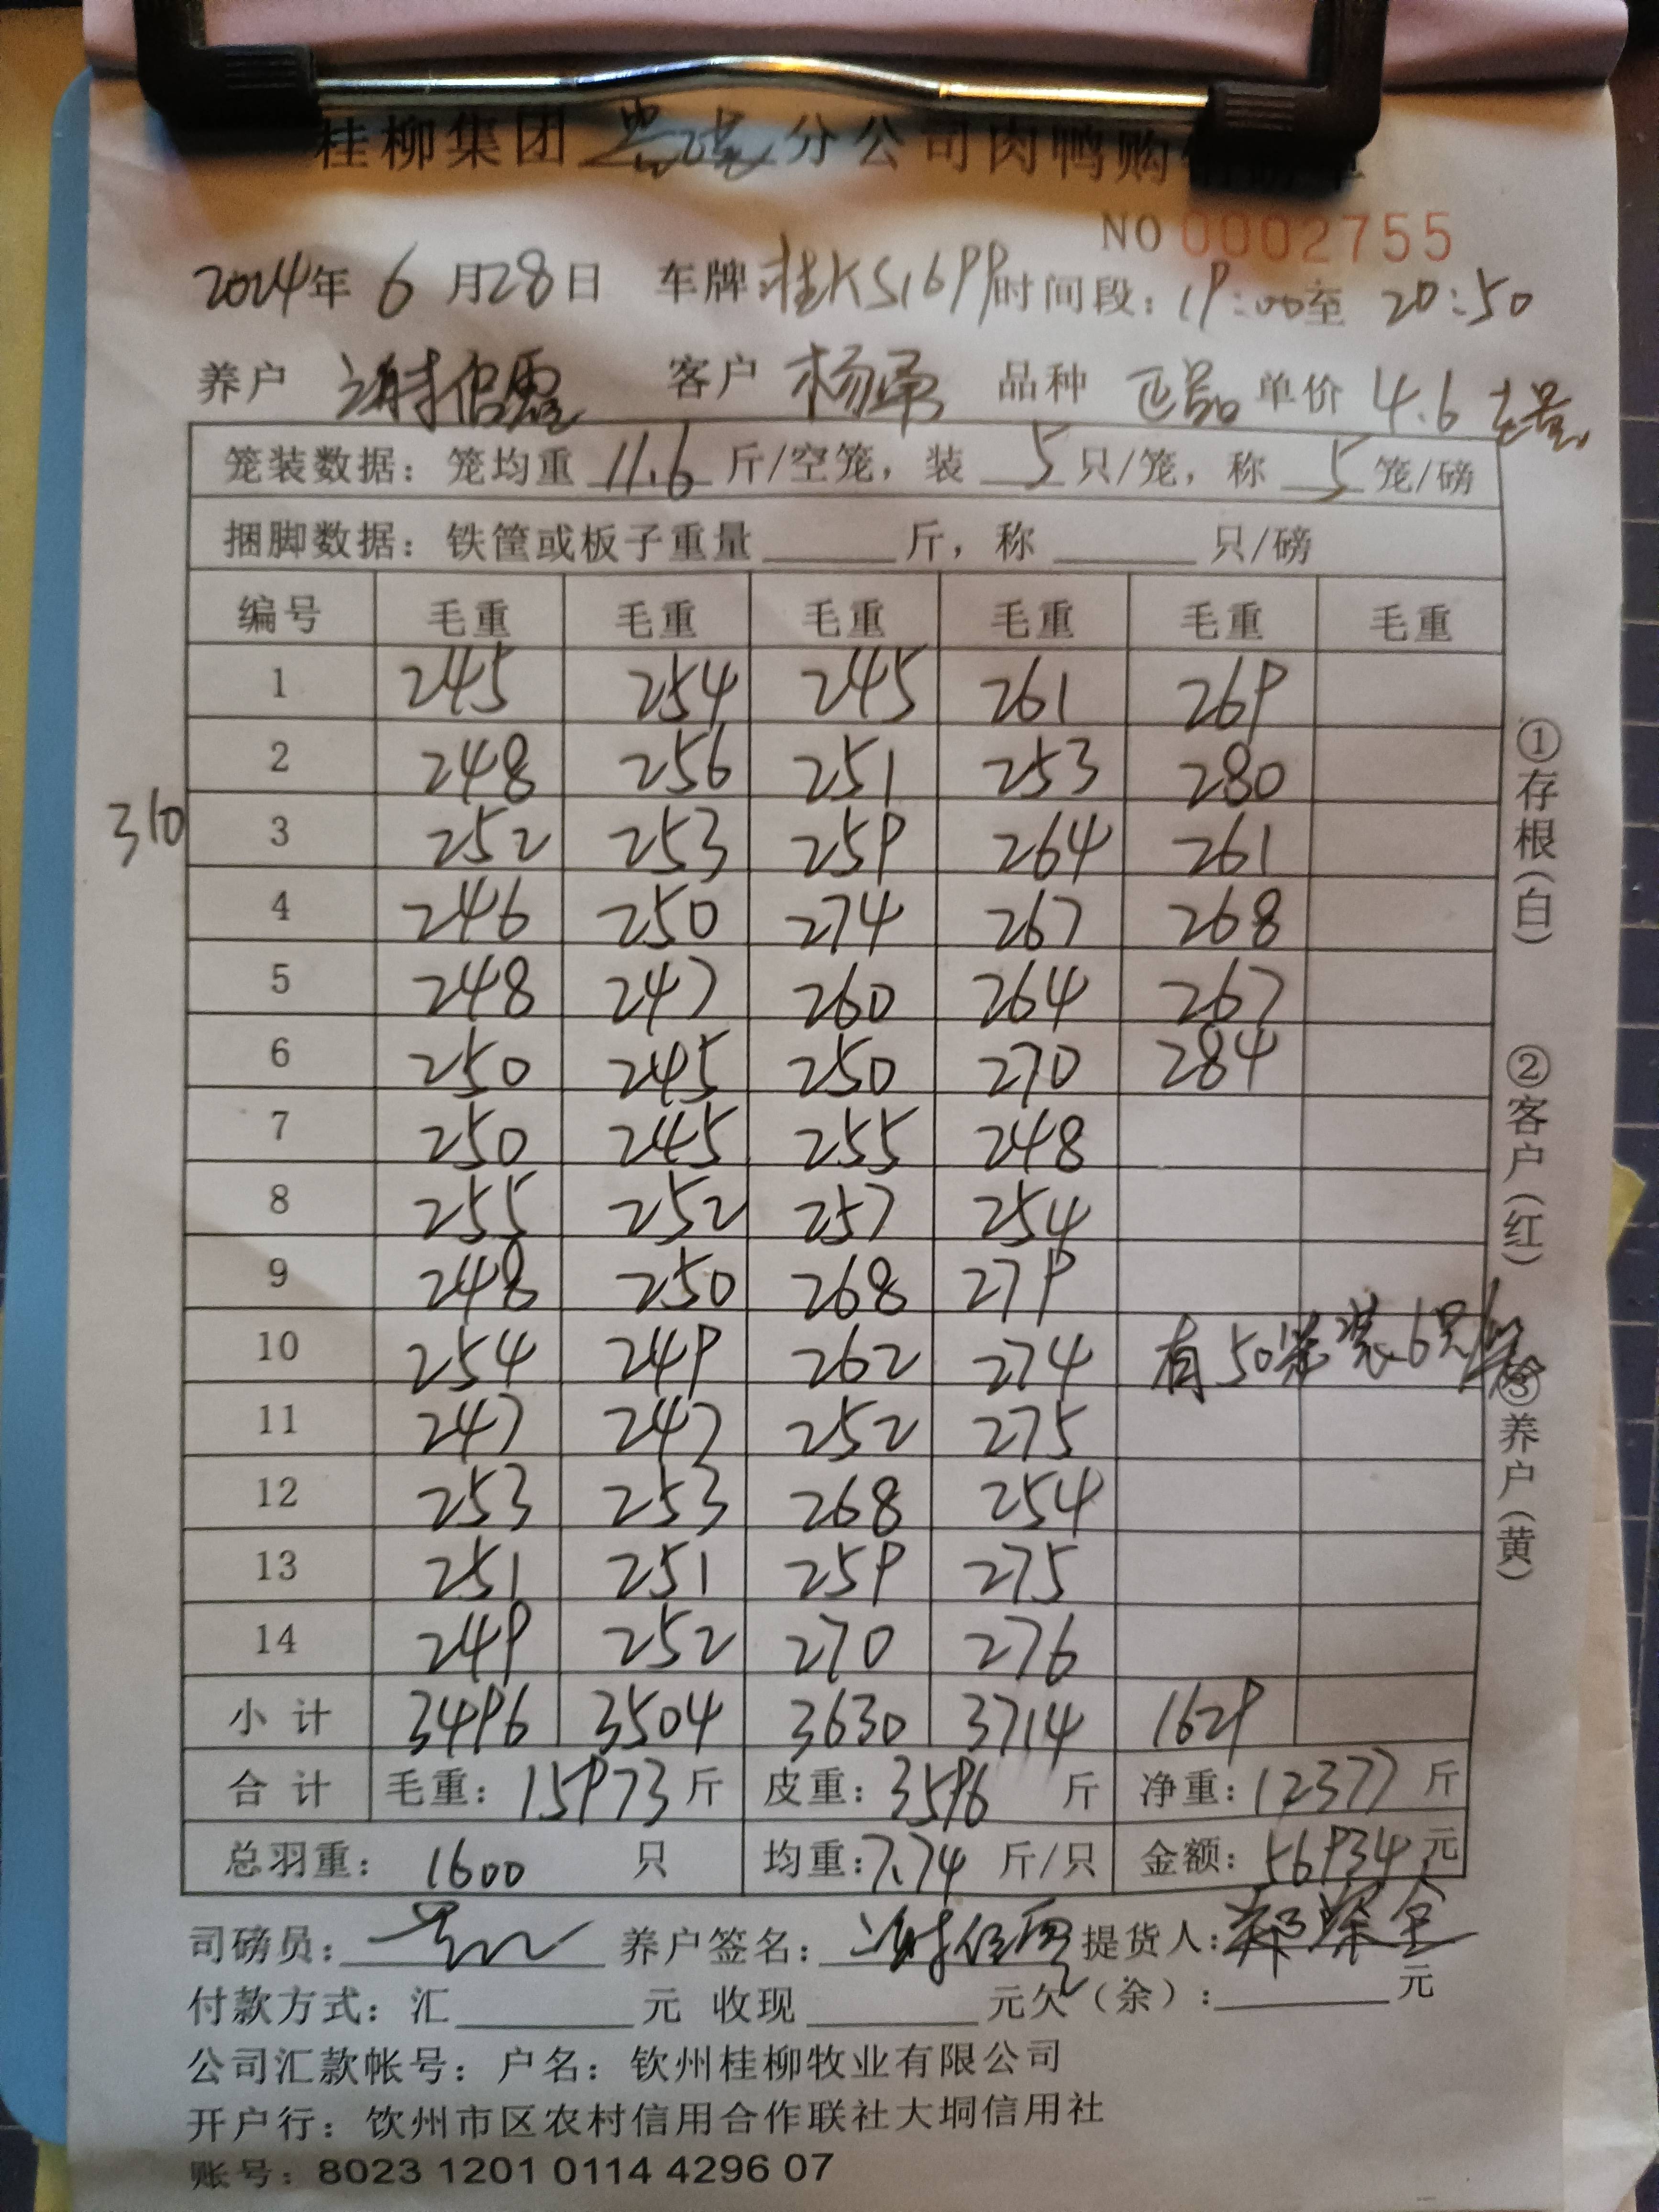 桂柳集团 分公司肉鸭购销磅单
NO 0002755
2024年 6 月28日 车牌:桂KS1699 时间段: 19:00至 20:50
养户 谢 客户 杨 品种 正品 单价 4.6 毛量
笼装数据: 笼均重 11.6 斤/空笼, 装 5 只/笼, 称 5 笼/磅
捆脚数据: 铁筐或板子重量 斤, 称 只/磅
编号 毛重 毛重 毛重 毛重 毛重 毛重
1 245 254 245 261 269
2 248 256 251 253 280
310
3 252 253 259 264 261
4 246 250 274 267 268
5 248 247 260 264 267
6 250 245 250 270 284
7 250 245 255 248
8 255 252 257 254
9 248 250 268 279
10 254 249 262 274 有50笼装6只/笼
11 247 247 252 275
12 253 253 268 254
13 251 251 259 275
14 249 252 270 276
小计 3496 3504 3630 3714 1629
合计 毛重: 15973 斤 皮重: 3596 斤 净重: 12377 斤
总羽重: 1600 只 均重: 7.74 斤/只 金额: 56934 元
司磅员: 养户签名: 谢 提货人:
付款方式: 汇 元 收现 元欠(余): 元
公司汇款帐号: 户名: 钦州桂柳牧业有限公司
开户行: 钦州市区农村信用合作联社大垌信用社
账号: 8023 1201 0114 4296 07
①存根(白)
②客户(红)
③养户(黄)